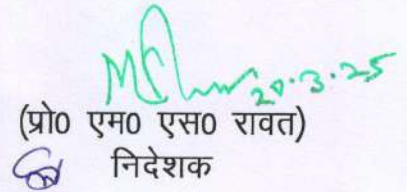 20.3.25
(प्रो0 एम0 एस0 रावत)
निदेशक